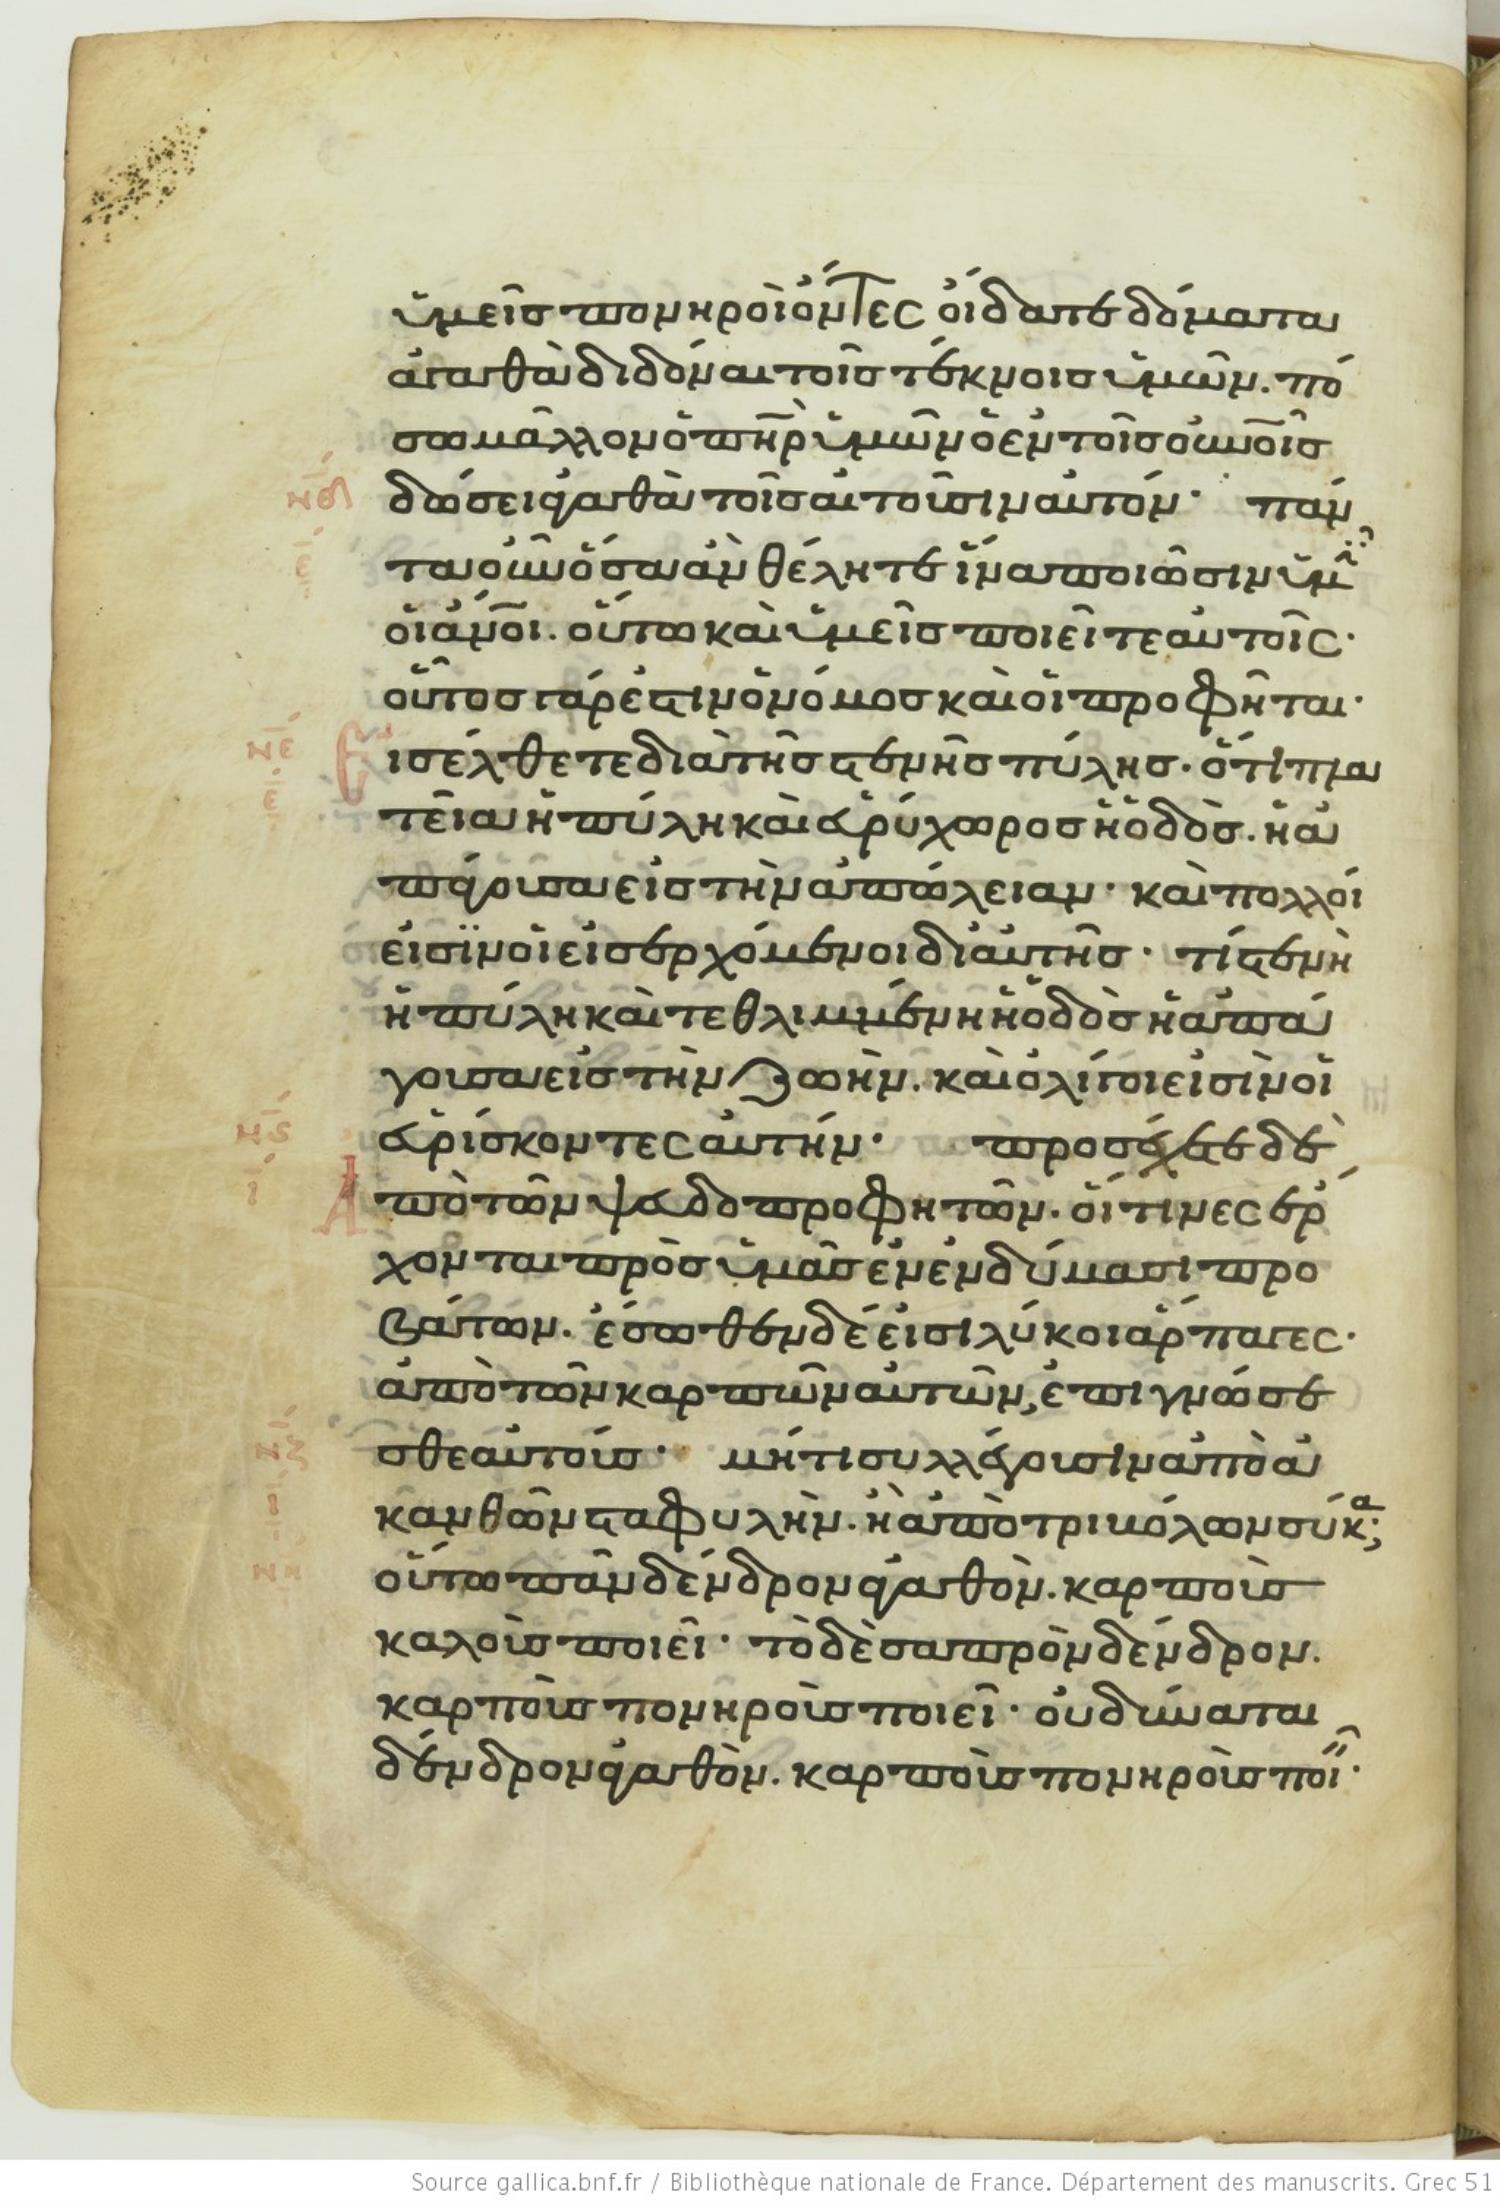 ὑμεῖς πονηροὶ ὄντες οἴδατε δόματα
ἀγαθὰ διδόναι τοῖς τέκνοις ὑμῶν. πό
σω μᾶλλον ὁ πη̅ρ ὑμῶν ὁ ἐν τοῖς οὐνο̅ις
δώσει ἀγαθὰ τοῖς αἰτοῦσιν αὐτόν· πάν
νδ
τα οὖν ὅσα ἀν θέλητε ἵνα ποιῶσιν ὑμῖ
ε
οἱ ἀνο̅ι. οὕτω καὶ ὑμεῖς ποιεῖτε αὐτοῖς·
οὗτος γάρ ἐστιν ὁ νόμος καὶ οἱ προφῆται·
νε
Εἰσέλθετε διὰ τῆς στενῆς πύλης. ὅτι πλα
ε
τεῖα ἡ πύλη καὶ εὐρύχωρος ἡ ὁδὸς. ἡ ἀ
πάγουσα εἰς τὴν ἀπώλειαν· καὶ πολλοί
εἰσϊν οἱ εἰσερχόμενοι δι αὐτῆς· τί στενὴ
ἡ πύλη καὶ τεθλιμμένη ἡ ὁδὸς ἡ ἀπά
γουσα εἰς τὴν ζωὴν. καὶ ὀλίγοι εἰσὶν οἱ
νς
εὑρίσκοντες αὐτήν· προσέχετε δὲ
ι
Ἀπὸ τῶν ψευδοπροφητῶν. οἵτινες ἔρ
χονται πρὸς ὑμᾶς ἐν ἐνδύμασι προ
βάτων. ἔσωθεν δέ εἰσι λύκοι ἅρπαγες·
ἀπὸ τῶν καρπῶν αὐτῶν, ἐπιγνώσε
σθε αὐτούς· μήτι συλλέγουσιν ἀπὸ ἀ
κανθῶν σταφυλὴν. ἢ ἀπὸ τριβόλων σύκα;
οὕτω πᾶν δένδρον ἀγαθὸν. καρποὺς
καλοὺς ποιεῖ· τὸ δὲ σαπρὸν δένδρον.
καρποὺς πονηροὺς ποιεῖ· οὐ δύναται
δένδρον ἀγαθὸν. καρποὺς πονηροὺς ποιεῖν·
Source gallica.bnf.fr / Bibliothèque nationale de France. Département des manuscrits. Grec 51